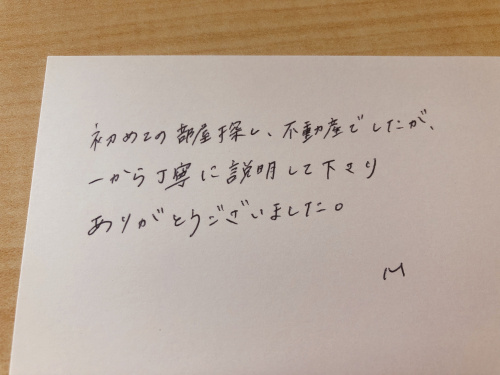 初めての部屋探し、不動産でしたが、
一から丁寧に説明して下さり
ありがとうございました。
M